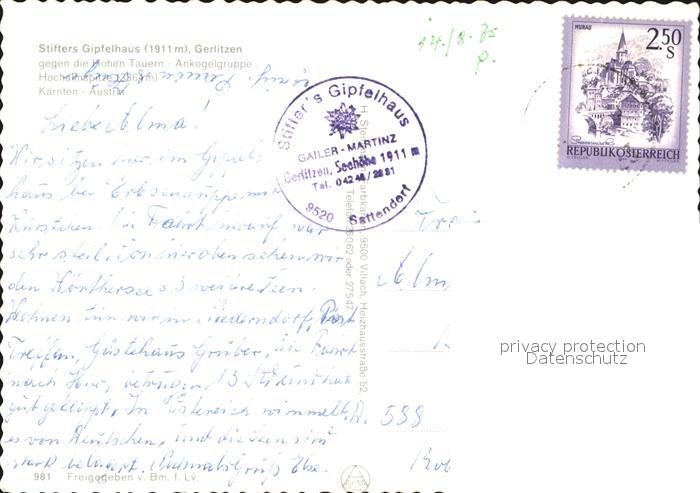 Stifters Gipfelhaus (1911 m), Gerlitzen
gegen die Hohen Tauern - Ankogelgruppe
Hochalmspitze (3360 m)
Kärnten - Austria
14./8.75
P.
MURAU
2.50
S
REPUBLIK ÖSTERREICH
Stifter's Gipfelhaus
GAILER-MARTINZ
Gerlitzen, Seehöhe 1911 m
Tel. 04248/2881
9520 Sattendorf
9500 Villach, Heizhausstraße 52,
Telefon 26062 oder 27547
Liebe Alma!
Wir sitzen hier im Gipfel-
haus bei Erbsensuppe mit
Würstchen. Die Fahrt hierauf war
sehr steil. Von hier oben sehen wir
den Wörthersee u. 3 weitere Seen.
Wohnen tun wir in Niederndorf, Post
Treffen, Gästehaus Gruber, die Fahrt
nach hier, 13 Stunden hat
gut geklappt. In Österreich wimmelt
es von Deutschen, und die Seen sind
stark belagert. Nochmals Gruß Ilse.
Alm
D. 588
privacy protection
Datenschutz
981 Freigegeben v. Bm. f. Lv.